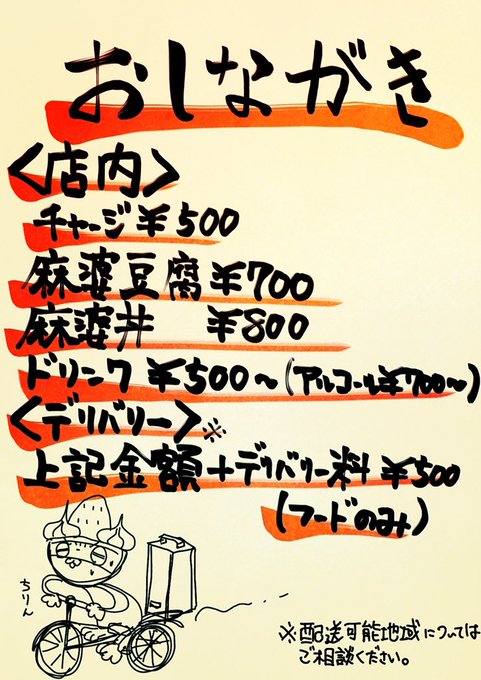 おしながき
<店内>
チャージ¥500
麻婆豆腐¥700
麻婆丼 ¥800
ドリンク ¥500〜(アルコール¥700〜)
<デリバリー>※
上記金額+デリバリー料 ¥500
(フードのみ)
ちりん
※配送可能地域については
ご相談ください。